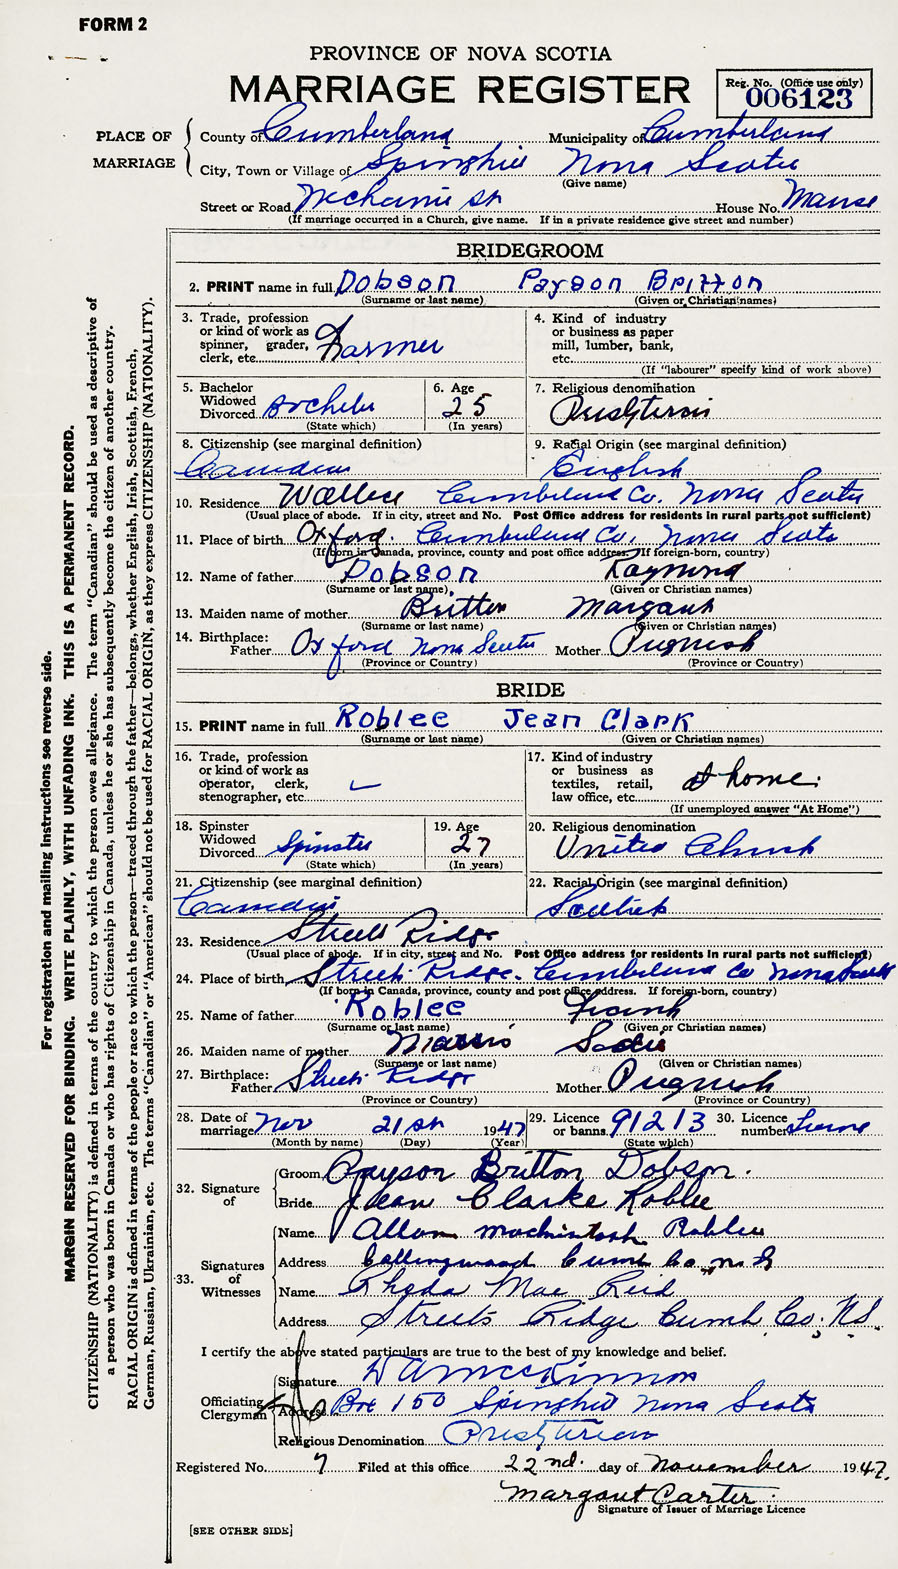 FORM 2
PROVINCE OF NOVA SCOTIA
MARRIAGE REGISTER
Reg. No. (Office use only)
006123
PLACE OF MARRIAGE
County of Cumberland Municipality of Cumberland
City, Town or Village of Springhill Nova Scotia
(Give name)
Street or Road Mechanic St House No. Manse
(If marriage occurred in a Church, give name. If in a private residence give street and number)
BRIDEGROOM
2. PRINT name in full Dobson Payson Britton
(Surname or last name) (Given or Christian names)
3. Trade, profession or kind of work as spinner, grader, clerk, etc. Farmer
4. Kind of industry or business as paper mill, lumber, bank, etc.
(If "labourer" specify kind of work above)
5. Bachelor Widowed Divorced Bachelor
(State which)
6. Age 25
(In years)
7. Religious denomination Presbyterian
8. Citizenship (see marginal definition) Canadian
9. Racial Origin (see marginal definition) English
10. Residence Wallace Cumberland Co. Nova Scotia
(Usual place of abode. If in city, street and No. Post Office address for residents in rural parts not sufficient)
11. Place of birth Oxford Cumberland Co, Nova Scotia
(If born in Canada, province, county and post office address. If foreign-born, country)
12. Name of father Dobson Raymond
(Surname or last name) (Given or Christian names)
13. Maiden name of mother Britton Margaret
(Surname or last name) (Given or Christian names)
14. Birthplace: Father Oxford Nova Scotia Mother Pugwash
(Province or Country) (Province or Country)
BRIDE
15. PRINT name in full Roblee Jean Clark
(Surname or last name) (Given or Christian names)
16. Trade, profession or kind of work as operator, clerk, stenographer, etc.
17. Kind of industry or business as textiles, retail, law office, etc. At home.
(If unemployed answer "At Home")
18. Spinster Widowed Divorced Spinster
(State which)
19. Age 27
(In years)
20. Religious denomination United Church
21. Citizenship (see marginal definition) Canadian
22. Racial Origin (see marginal definition) Scottish
23. Residence Streets Ridge
(Usual place of abode. If in city, street and No. Post Office address for residents in rural parts not sufficient)
24. Place of birth Streets Ridge. Cumberland Co Nova Scotia
(If born in Canada, province, county and post office address. If foreign-born, country)
25. Name of father Roblee Frank
(Surname or last name) (Given or Christian names)
26. Maiden name of mother Sadie
(Surname or last name) (Given or Christian names)
27. Birthplace: Father Streets Ridge Mother Pugwash
(Province or Country) (Province or Country)
28. Date of marriage Nov 21st 1947
(Month by name) (Day) (Year)
29. Licence or banns 91213
(State which)
30. Licence number
32. Signature of
Groom Payson Britton Dobson.
Bride Jean Clarke Roblee
33. Signatures of Witnesses
Name Allan MacKintosh Roblee
Address Collingwood Cumb Co, N.S
Name Rheda Mae Reid
Address Streets Ridge Cumb. Co., N.S.
I certify the above stated particulars are true to the best of my knowledge and belief.
Officiating Clergyman
Signature McKinnon
Address Box 150 Springhill Nova Scotia
Religious Denomination Presbyterian
Registered No. 7 Filed at this office 22nd. day of November 1947.
Margaret Carter.
Signature of Issuer of Marriage Licence
[SEE OTHER SIDE]
For registration and mailing instructions see reverse side.
MARGIN RESERVED FOR BINDING. WRITE PLAINLY, WITH UNFADING INK. THIS IS A PERMANENT RECORD.
CITIZENSHIP (NATIONALITY) is defined in terms of the country to which the person owes allegiance. The term "Canadian" should be used as descriptive of
a person who was born in Canada or who has rights of Citizenship in Canada, unless he or she has subsequently become the citizen of another country.
RACIAL ORIGIN is defined in terms of the people or race to which the person—traced through the father—belongs, whether English, Irish, Scottish, French,
German, Russian, Ukrainian, etc. The terms "Canadian" or "American" should not be used for RACIAL ORIGIN, as they express CITIZENSHIP (NATIONALITY).